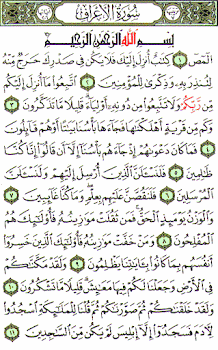 سُورَةُ الأَعْرَافِ
بِسْمِ اللَّهِ الرَّحْمَٰنِ الرَّحِيمِ
الٓمٓصٓ ١ كِتَٰبٌ أُنزِلَ إِلَيْكَ فَلَا يَكُن فِى صَدْرِكَ حَرَجٌ مِّنْهُ
لِتُنذِرَ بِهِۦ وَذِكْرَىٰ لِلْمُؤْمِنِينَ ٢ ٱتَّبِعُوا۟ مَآ أُنزِلَ إِلَيْكُم
مِّن رَّبِّكُمْ وَلَا تَتَّبِعُوا۟ مِن دُونِهِۦٓ أَوْلِيَآءَ ۗ قَلِيلًا مَّا تَذَكَّرُونَ ٣
وَكَم مِّن قَرْيَةٍ أَهْلَكْنَٰهَا فَجَآءَهَا بَأْسُنَا بَيَٰتًا أَوْ هُمْ قَآئِلُونَ
٤ فَمَا كَانَ دَعْوَىٰهُمْ إِذْ جَآءَهُم بَأْسُنَآ إِلَّآ أَن قَالُوٓا۟ إِنَّا كُنَّا
ظَٰلِمِينَ ٥ فَلَنَسْـَٔلَنَّ ٱلَّذِينَ أُرْسِلَ إِلَيْهِمْ وَلَنَسْـَٔلَنَّ
ٱلْمُرْسَلِينَ ٦ فَلَنَقُصَّنَّ عَلَيْهِم بِعِلْمٍ ۖ وَمَا كُنَّا غَآئِبِينَ
٧ وَٱلْوَزْنُ يَوْمَئِذٍ ٱلْحَقُّ ۚ فَمَن ثَقُلَتْ مَوَٰزِينُهُۥ فَأُو۟لَٰٓئِكَ هُمُ
ٱلْمُفْلِحُونَ ٨ وَمَنْ خَفَّتْ مَوَٰزِينُهُۥ فَأُو۟لَٰٓئِكَ ٱلَّذِينَ خَسِرُوٓا۟
أَنفُسَهُم بِمَا كَانُوا۟ بِـَٔايَٰتِنَا يَظْلِمُونَ ٩ وَلَقَدْ مَكَّنَّٰكُمْ
فِى ٱلْأَرْضِ وَجَعَلْنَا لَكُمْ فِيهَا مَعَٰيِشَ ۗ قَلِيلًا مَّا تَشْكُرُونَ ١٠
وَلَقَدْ خَلَقْنَٰكُمْ ثُمَّ صَوَّرْنَٰكُمْ ثُمَّ قُلْنَا لِلْمَلَٰٓئِكَةِ ٱسْجُدُوا۟
لِءَادَمَ فَسَجَدُوٓا۟ إِلَّآ إِبْلِيسَ لَمْ يَكُن مِّنَ ٱلسَّٰجِدِينَ ١١